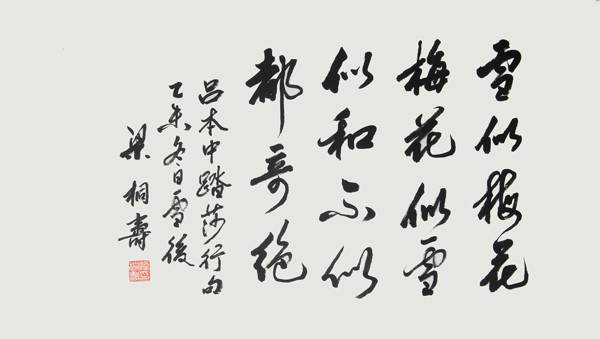 雪似梅花
梅花似雪
似和不似
都奇绝
吕本中踏莎行句
乙未冬日雪後
梁桐壽